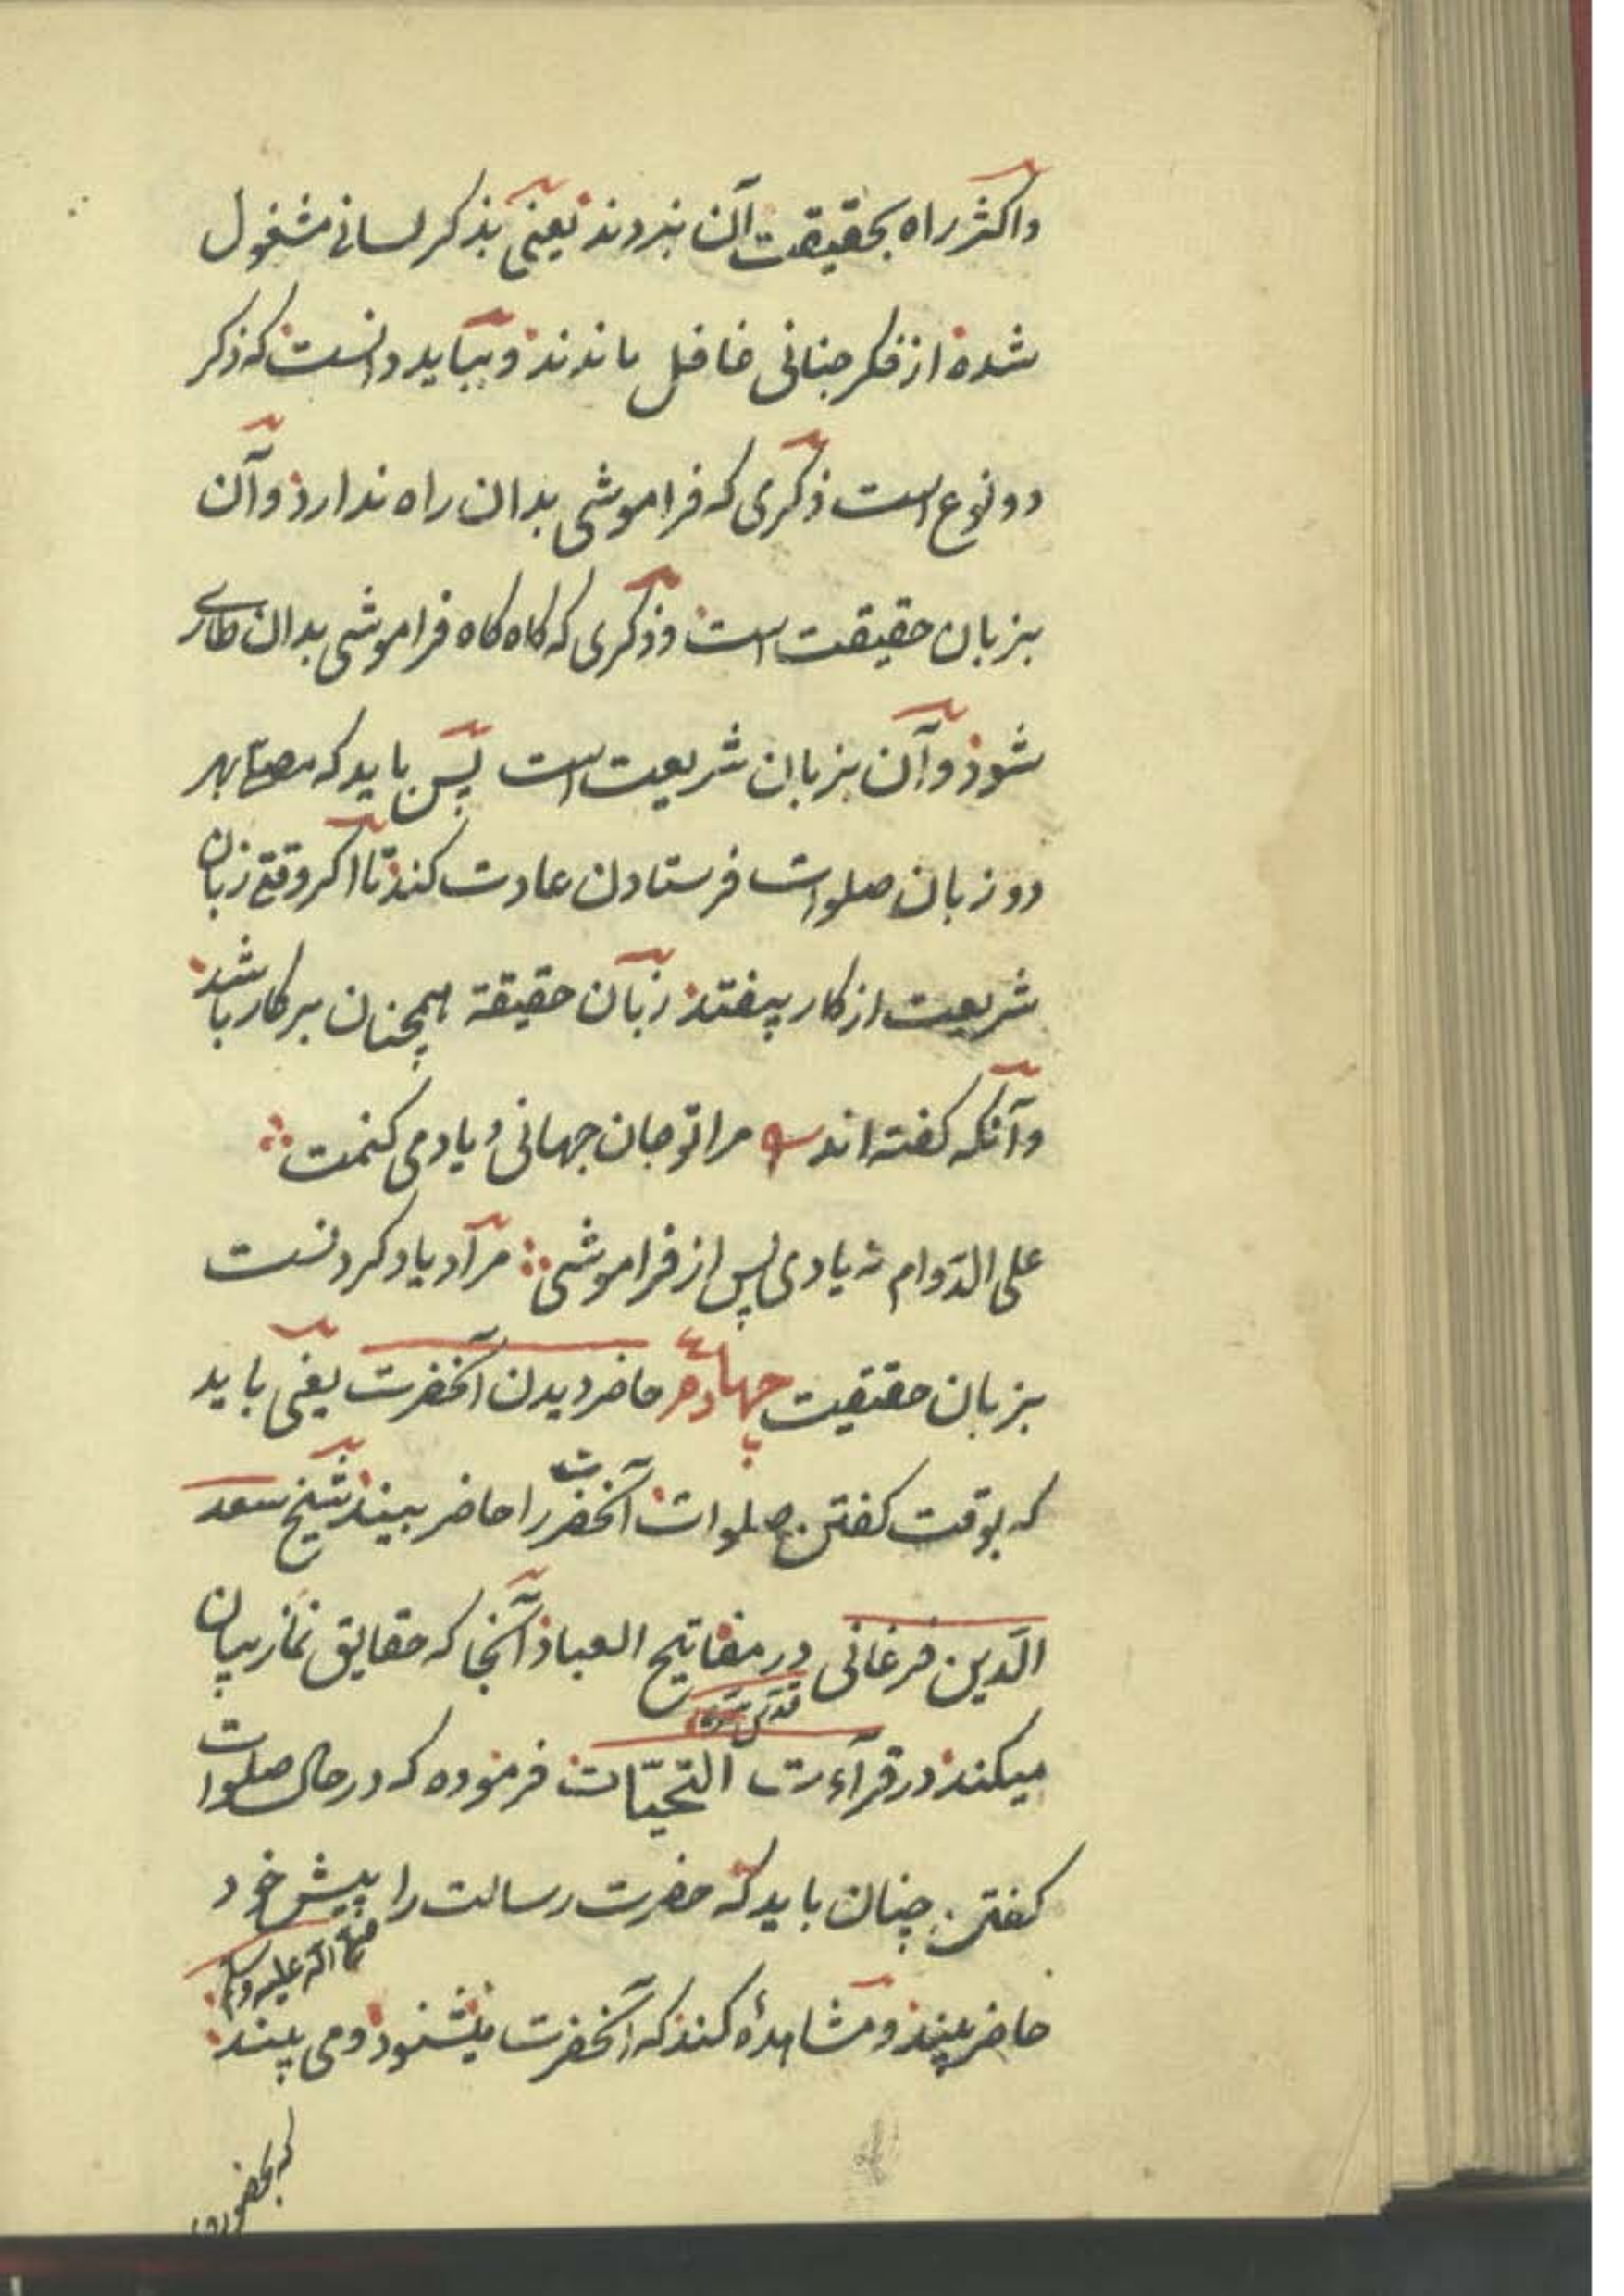 واکثر راه بحقیقت آن نبردند یعنی بذکر لسانی مشغول
شده از فکر جنانی غافل ماندند و بباید دانست که ذکر
دو نوع است ذکری که فراموشی بدان راه ندارد و آن
بزبان حقیقت است و ذکری که کاه کاه فراموشی بدان طاری
شود و آن بزبان شریعت است پس باید که مصلی بهر
دو زبان صلوات فرستادن عادت کند تا اکر وقتی زبان
شریعت از کار بیفتد زبان حقیقة همچنان بر کار باشد
و آنکه کفته اند مرا تو جان جهانی و یاد می کنمت
علی الدّوام نه یادی پس از فراموشی مراد یاد کردنست
بزبان حقیقت چهارم حاضر دیدن آنحضرت یعنی باید
که بوقت کفتن صلوات آنحضرت را حاضر بیند شیخ سعد
الدّین فرغانی در مفاتیح العباد آنجا که حقایق نماز بیان
قدّس سرّه
میکند در قرآءت التحیّات فرموده که در حال صلوات
کفتن چنان باید که حضرت رسالت را پیش خود
صلی الله علیه وسلم
حاضر بیند و مشاهدهٔ کند که آنحضرت میشنود و می بیند
که بحضور